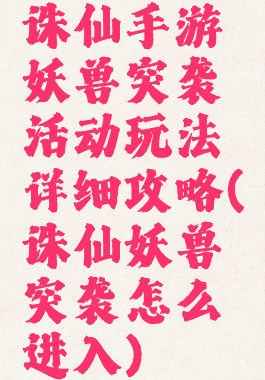 诛仙手游
妖兽突袭
活动玩法
详细攻略(
诛仙妖兽
突袭怎么
进入)